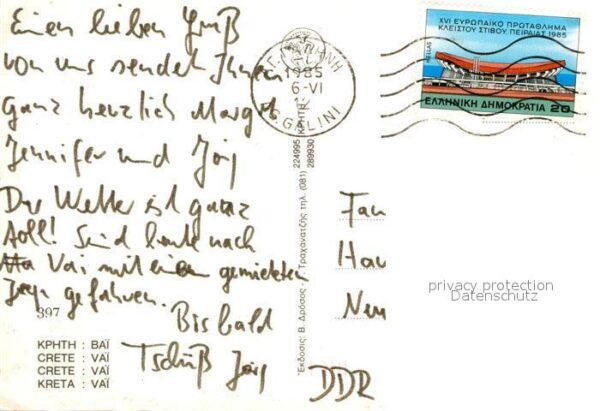 Einen lieben Gruß
von uns sendet Ihnen
ganz herzlich Margit
Jennifer und Jörg
Das Wetter ist ganz
toll! Sind heute nach
Vai mit einem gemieteten
Jeep gefahren.
Bis bald
Tschüß Jörg
397
ΚΡΗΤΗ : ΒΑΪ
CRETE : VAÏ
CRETE : VAÏ
KRETA : VAÏ
Έκδοσις: Β. Δρόσος - Τραχανατζής τηλ. (081) 224995 289930
ΓΑΛΗΝΗ
1985
6-VI
ΚΡΗΤΗΣ
GALINI
XVI ΕΥΡΩΠΑΪΚΟ ΠΡΩΤΑΘΛΗΜΑ
ΚΛΕΙΣΤΟΥ ΣΤΙΒΟΥ, ΠΕΙΡΑΙΑΣ 1985
HELLAS
ΕΛΛΗΝΙΚΗ ΔΗΜΟΚΡΑΤΙΑ 20
Fam
Hau
Neu
DDR
privacy protection
Datenschutz